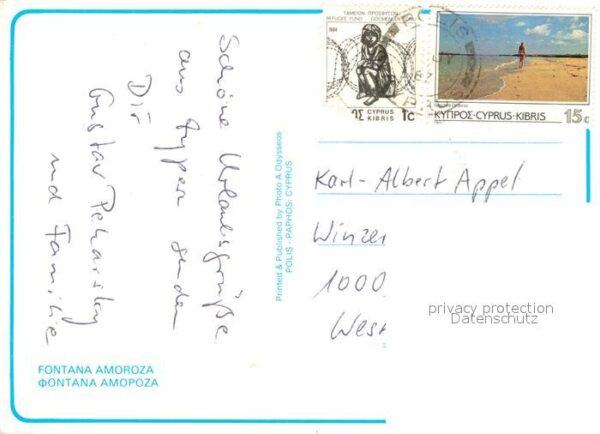 Schöne Urlaubsgrüße
aus Zypern senden
Dir
Gustav Pekarsky
und Familie
FONTANA AMOROZA
ΦΟΝΤΑΝΑ ΑΜΟΡΟΖΑ
Printed & Published by Photo A.Odysseos
POLIS - PAPHOS: CYPRUS
ΤΑΜΕΙΟΝ ΠΡΟΣΦΥΓΩΝ
REFUGEE FUND GÖÇMEN
1984
CYPRUS
KIBRIS
1c
POLIS
ΚΥΠΡΟΣ·CYPRUS·KIBRIS 15c
Karl-Albert Appel
Winzer
1000
West
privacy protection
Datenschutz